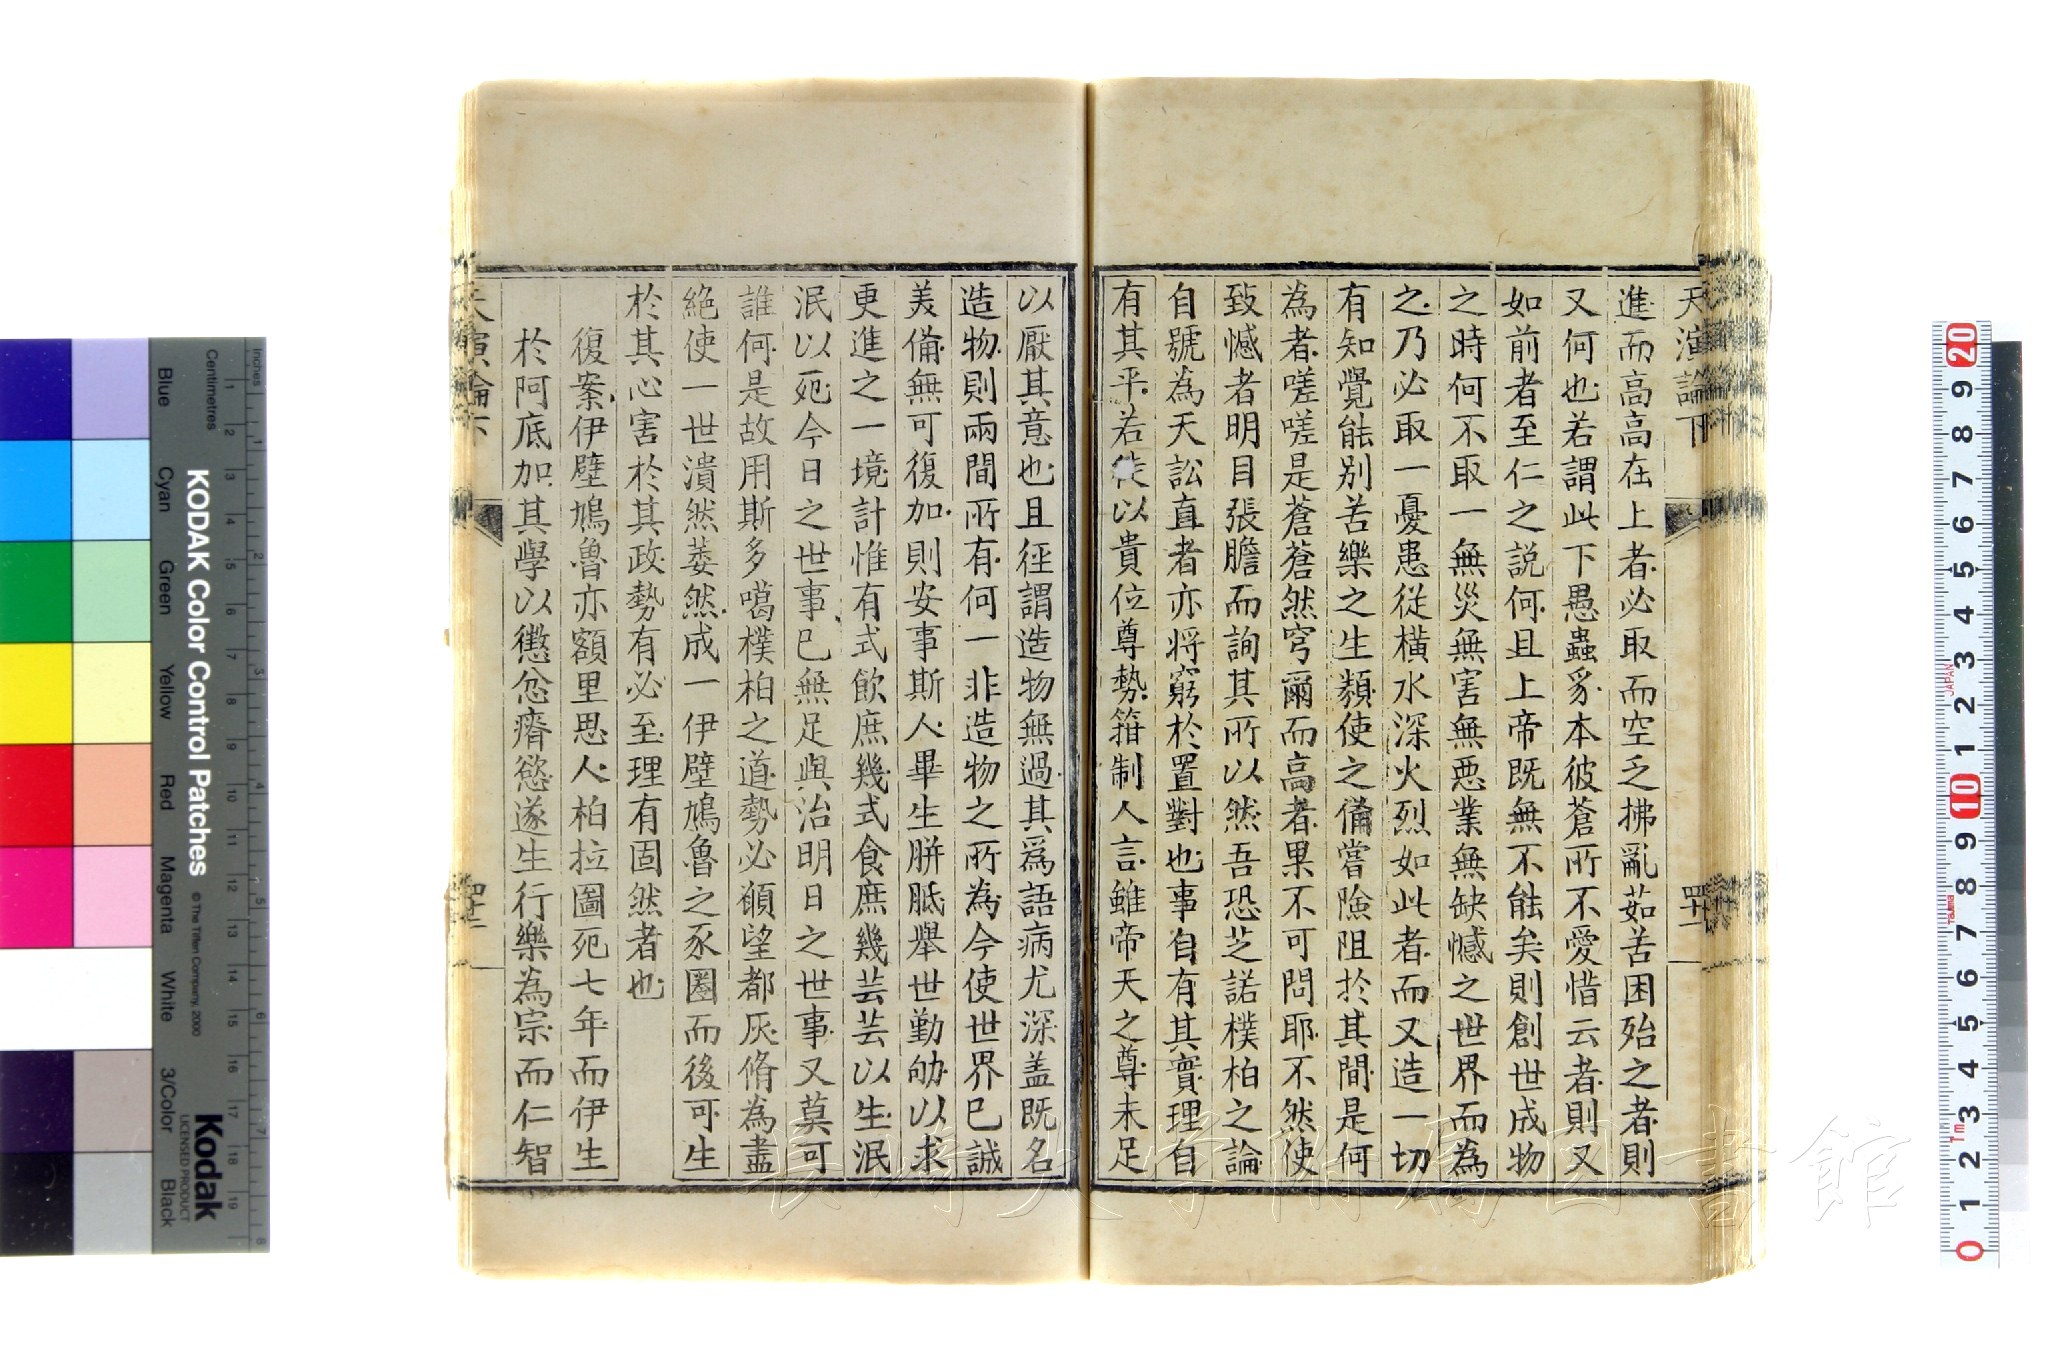 天演論下
四十一
進而高高在上者必取而空乏拂亂茹苦困殆之者則
又何也若謂此下愚蟲豸本彼蒼所不愛惜云者則又
如前者至仁之説何且上帝既無不能矣則創世成物
之時何不取一無災無害無惡業無缺憾之世界而為
之乃必取一憂患從橫水深火烈如此者而又造一切
有知覺能別苦樂之生類使之備嘗險阻於其間是何
為者嗟嗟是蒼蒼然穹爾而高者果不可問耶不然使
致憾者明目張膽而詢其所以然吾恐芝諾樸柏之論
自號為天訟直者亦將窮於置對也事自有其實理自
有其平若徒以貴位尊勢箝制人言雖帝天之尊未足
以厭其意也且徑謂造物無過其爲語病尤深盖既名
造物則兩間所有何一非造物之所為今使世界已誠
美備無可復加則安事斯人畢生胼胝舉世勤劬以求
更進之一境計惟有式飲庶幾式食庶幾芸芸以生泯
泯以死今日之世事已無足與治明日之世事又莫可
誰何是故用斯多噶樸柏之道勢必願望都灰脩為盡
絕使一世潰然萎然成一伊壁鳩魯之豕圈而後可生
於其心害於其政勢有必至理有固然者也
復案伊壁鳩魯亦額里思人柏拉圖死七年而伊生
於阿底加其學以懲忿瘠慾遂生行樂為宗而仁智
天演論下
四十二
KODAK Color Control Patches
© The Tiffen Company, 2000
Kodak
LICENSED PRODUCT
Inches
Centimetres
Blue
Cyan
Green
Yellow
Red
Magenta
White
3/Color
Black
JAPAN
Tajima
長崎大学附属図書館